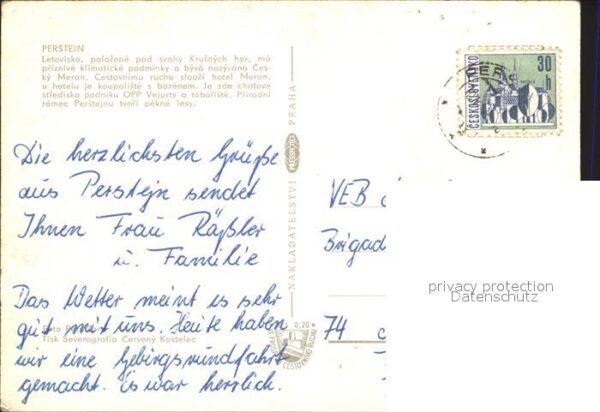 PERŠTEJN
Letovisko, položené pod svahy Krušných hor, má
příznivé klimatické podmínky a bývá nazýváno Čes-
ký Meran. Cestovnímu ruchu slouží hotel Moran,
u hotelu je koupaliště s bazénem. Je zde chatové
středisko podniku OPP Vejprty a tábořiště. Přírodní
rámec Perštejnu tvoří pěkné lesy.
ČESKOSLOVENSKO
30
h
Die herzlichsten Grüße
aus Perstejn sendet
Ihnen Frau Räßler
u. Familie
Das Wetter meint es sehr
gut mit uns. Heute haben
wir eine Gebirgsrundfahrt
gemacht. Es war herrlich.
Foto
Tisk Severografia Červený Kostelec
NAKLADATELSTVÍ
PRESSFOTO
PRAHA
0,20
CESTOVNÍHO RUCHU
VEB
Brigad
74
privacy protection
Datenschutz